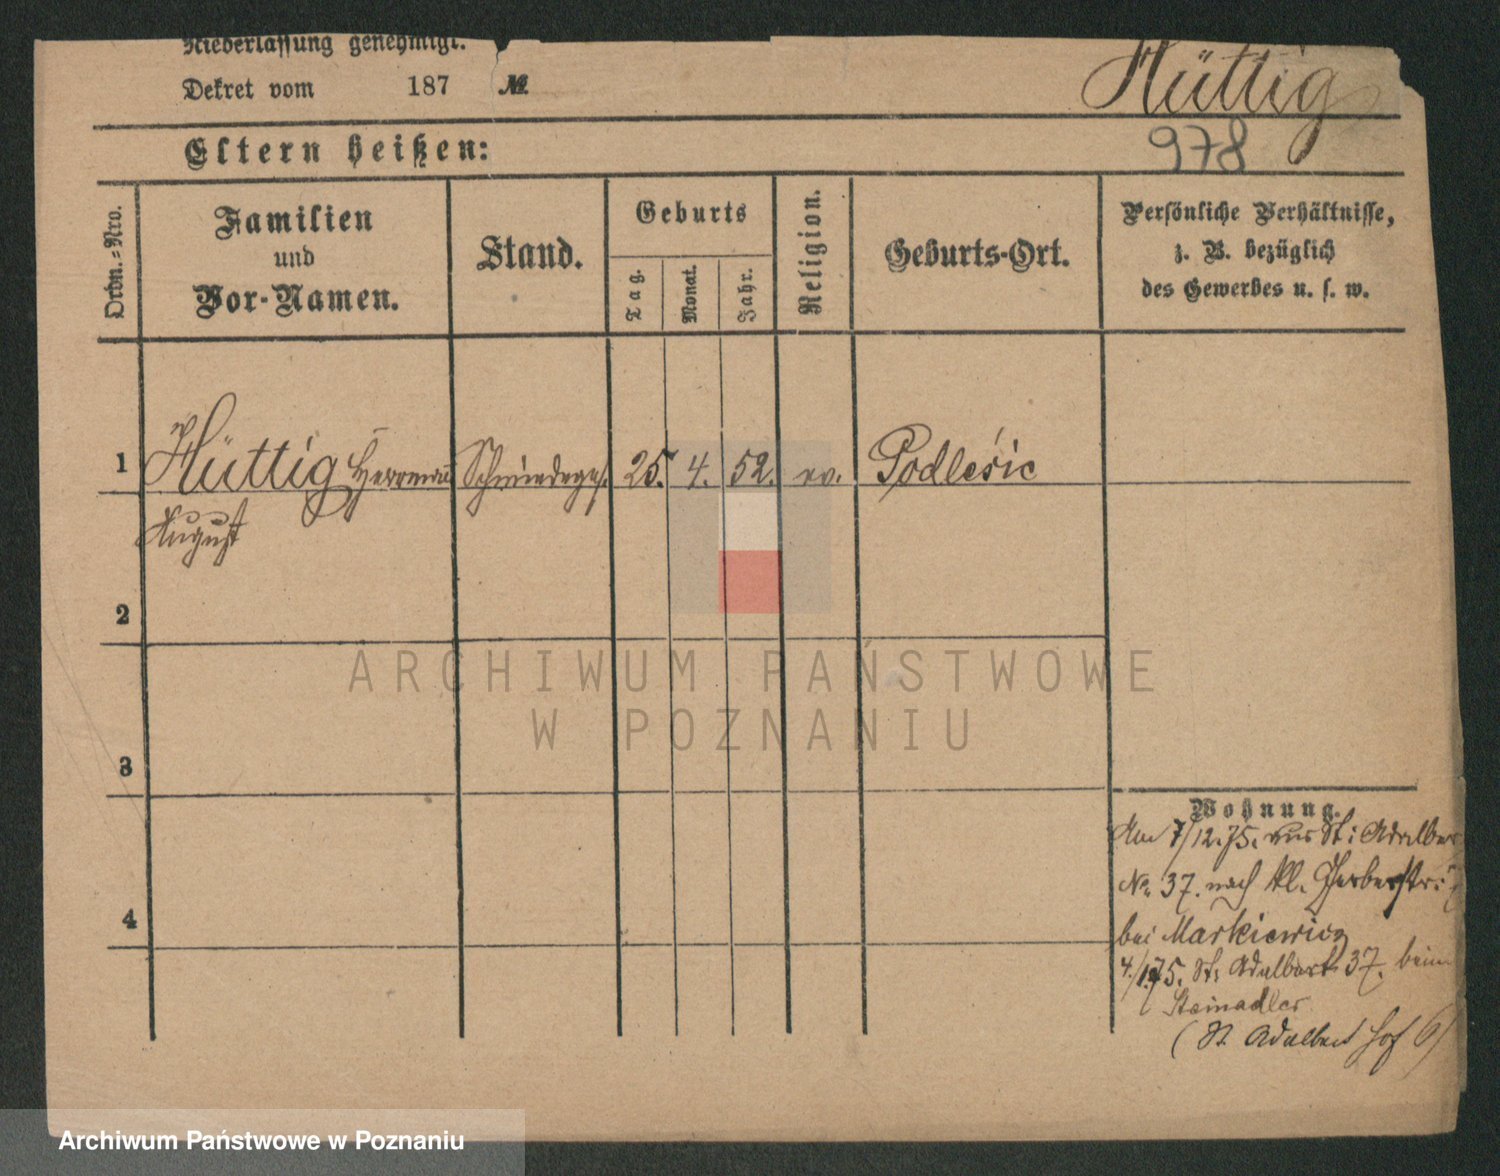 Niederlassung genehmigt.
Dekret vom 187 №
Hüttig
Eltern heißen:
978
Ordn.-Nro.
Familien
und
Vor-Namen.
Stand.
Geburts
Tag.
Monat.
Jahr.
Religion.
Geburts-Ort.
Persönliche Verhältnisse,
z. B. bezüglich
des Gewerbes u. s. w.
1 Hüttig Herrmann Schmiedeges. 25. 4. 52. ev. Podlesic
August
2
3
4
Wohnung.
Am 7/12.75. aus St: Adalbert
No. 37. nach kl. Gerberstr:
bei Markiewicz
St: Adalbert 37. beim
Steinadler
(St. Adalbert Hof 6)
ARCHIWUM PAŃSTWOWE
W POZNANIU
Archiwum Państwowe w Poznaniu